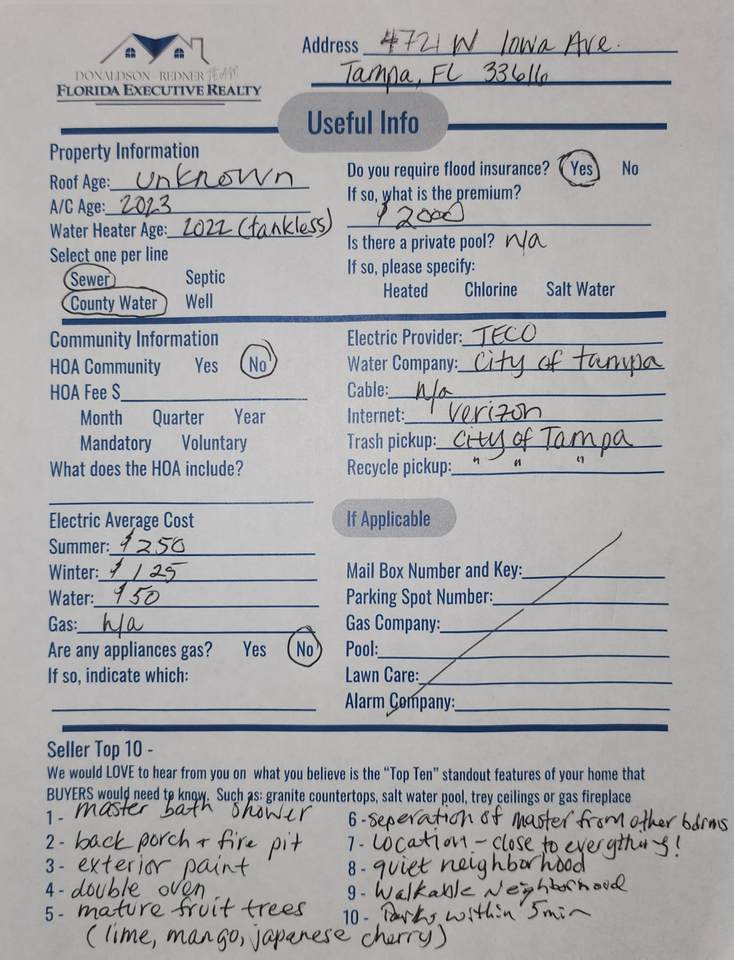 Address 4721 W Iowa Ave.
Tampa, FL 33616
DONALDSON - REDNER TEAM
FLORIDA EXECUTIVE REALTY
Useful Info
Property Information
Roof Age: unknown
A/C Age: 2023
Water Heater Age: 2022 (tankless)
Select one per line
Sewer Septic
County Water Well
Do you require flood insurance? Yes No
If so, what is the premium?
$2000
Is there a private pool? n/a
If so, please specify:
Heated Chlorine Salt Water
Community Information
HOA Community Yes No
HOA Fee $
Month Quarter Year
Mandatory Voluntary
What does the HOA include?
Electric Provider: TECO
Water Company: City of tampa
Cable: n/a
Internet: verizon
Trash pickup: City of Tampa
Recycle pickup: " " "
Electric Average Cost
Summer: $250
Winter: $125
Water: $50
Gas: n/a
Are any appliances gas? Yes No
If so, indicate which:
If Applicable
Mail Box Number and Key:
Parking Spot Number:
Gas Company:
Pool:
Lawn Care:
Alarm Company:
Seller Top 10 -
We would LOVE to hear from you on what you believe is the “Top Ten” standout features of your home that
BUYERS would need to know. Such as: granite countertops, salt water pool, trey ceilings or gas fireplace
1 - master bath shower
2 - back porch + fire pit
3 - exterior paint
4 - double oven
5 - mature fruit trees
(lime, mango, japanese cherry)
6 - seperation of master from other bdrms
7 - Location - close to everything!
8 - quiet neighborhood
9 - Walkable Neighborhood
10 - Parks within 5 min